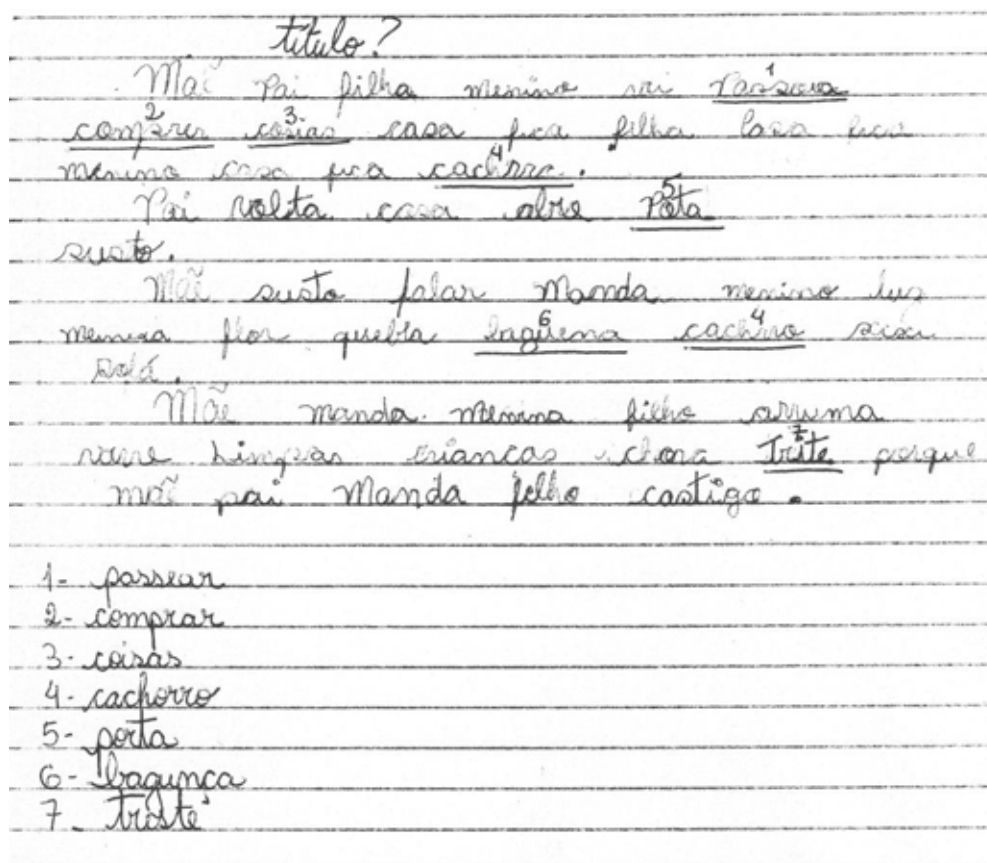 título?
Mãe Pai filha menino vai Passeva 1
comprer 2 cosias 3 casa fica filha casa fica
menino casa fica cachrro 4.
Pai volta casa abre Pota 5
susto.
Mãe susto falar Manda menino luz
menina flor quebra 6 cachrro 4 xixi
sofá.
Mãe manda menina filho arruma
varre Limpsas crianças chora trite 7 porque
mãe pai Manda filho castigo.
1- passear
2- comprar
3- coisas
4- cachorro
5- porta
6- bagunça
7- triste